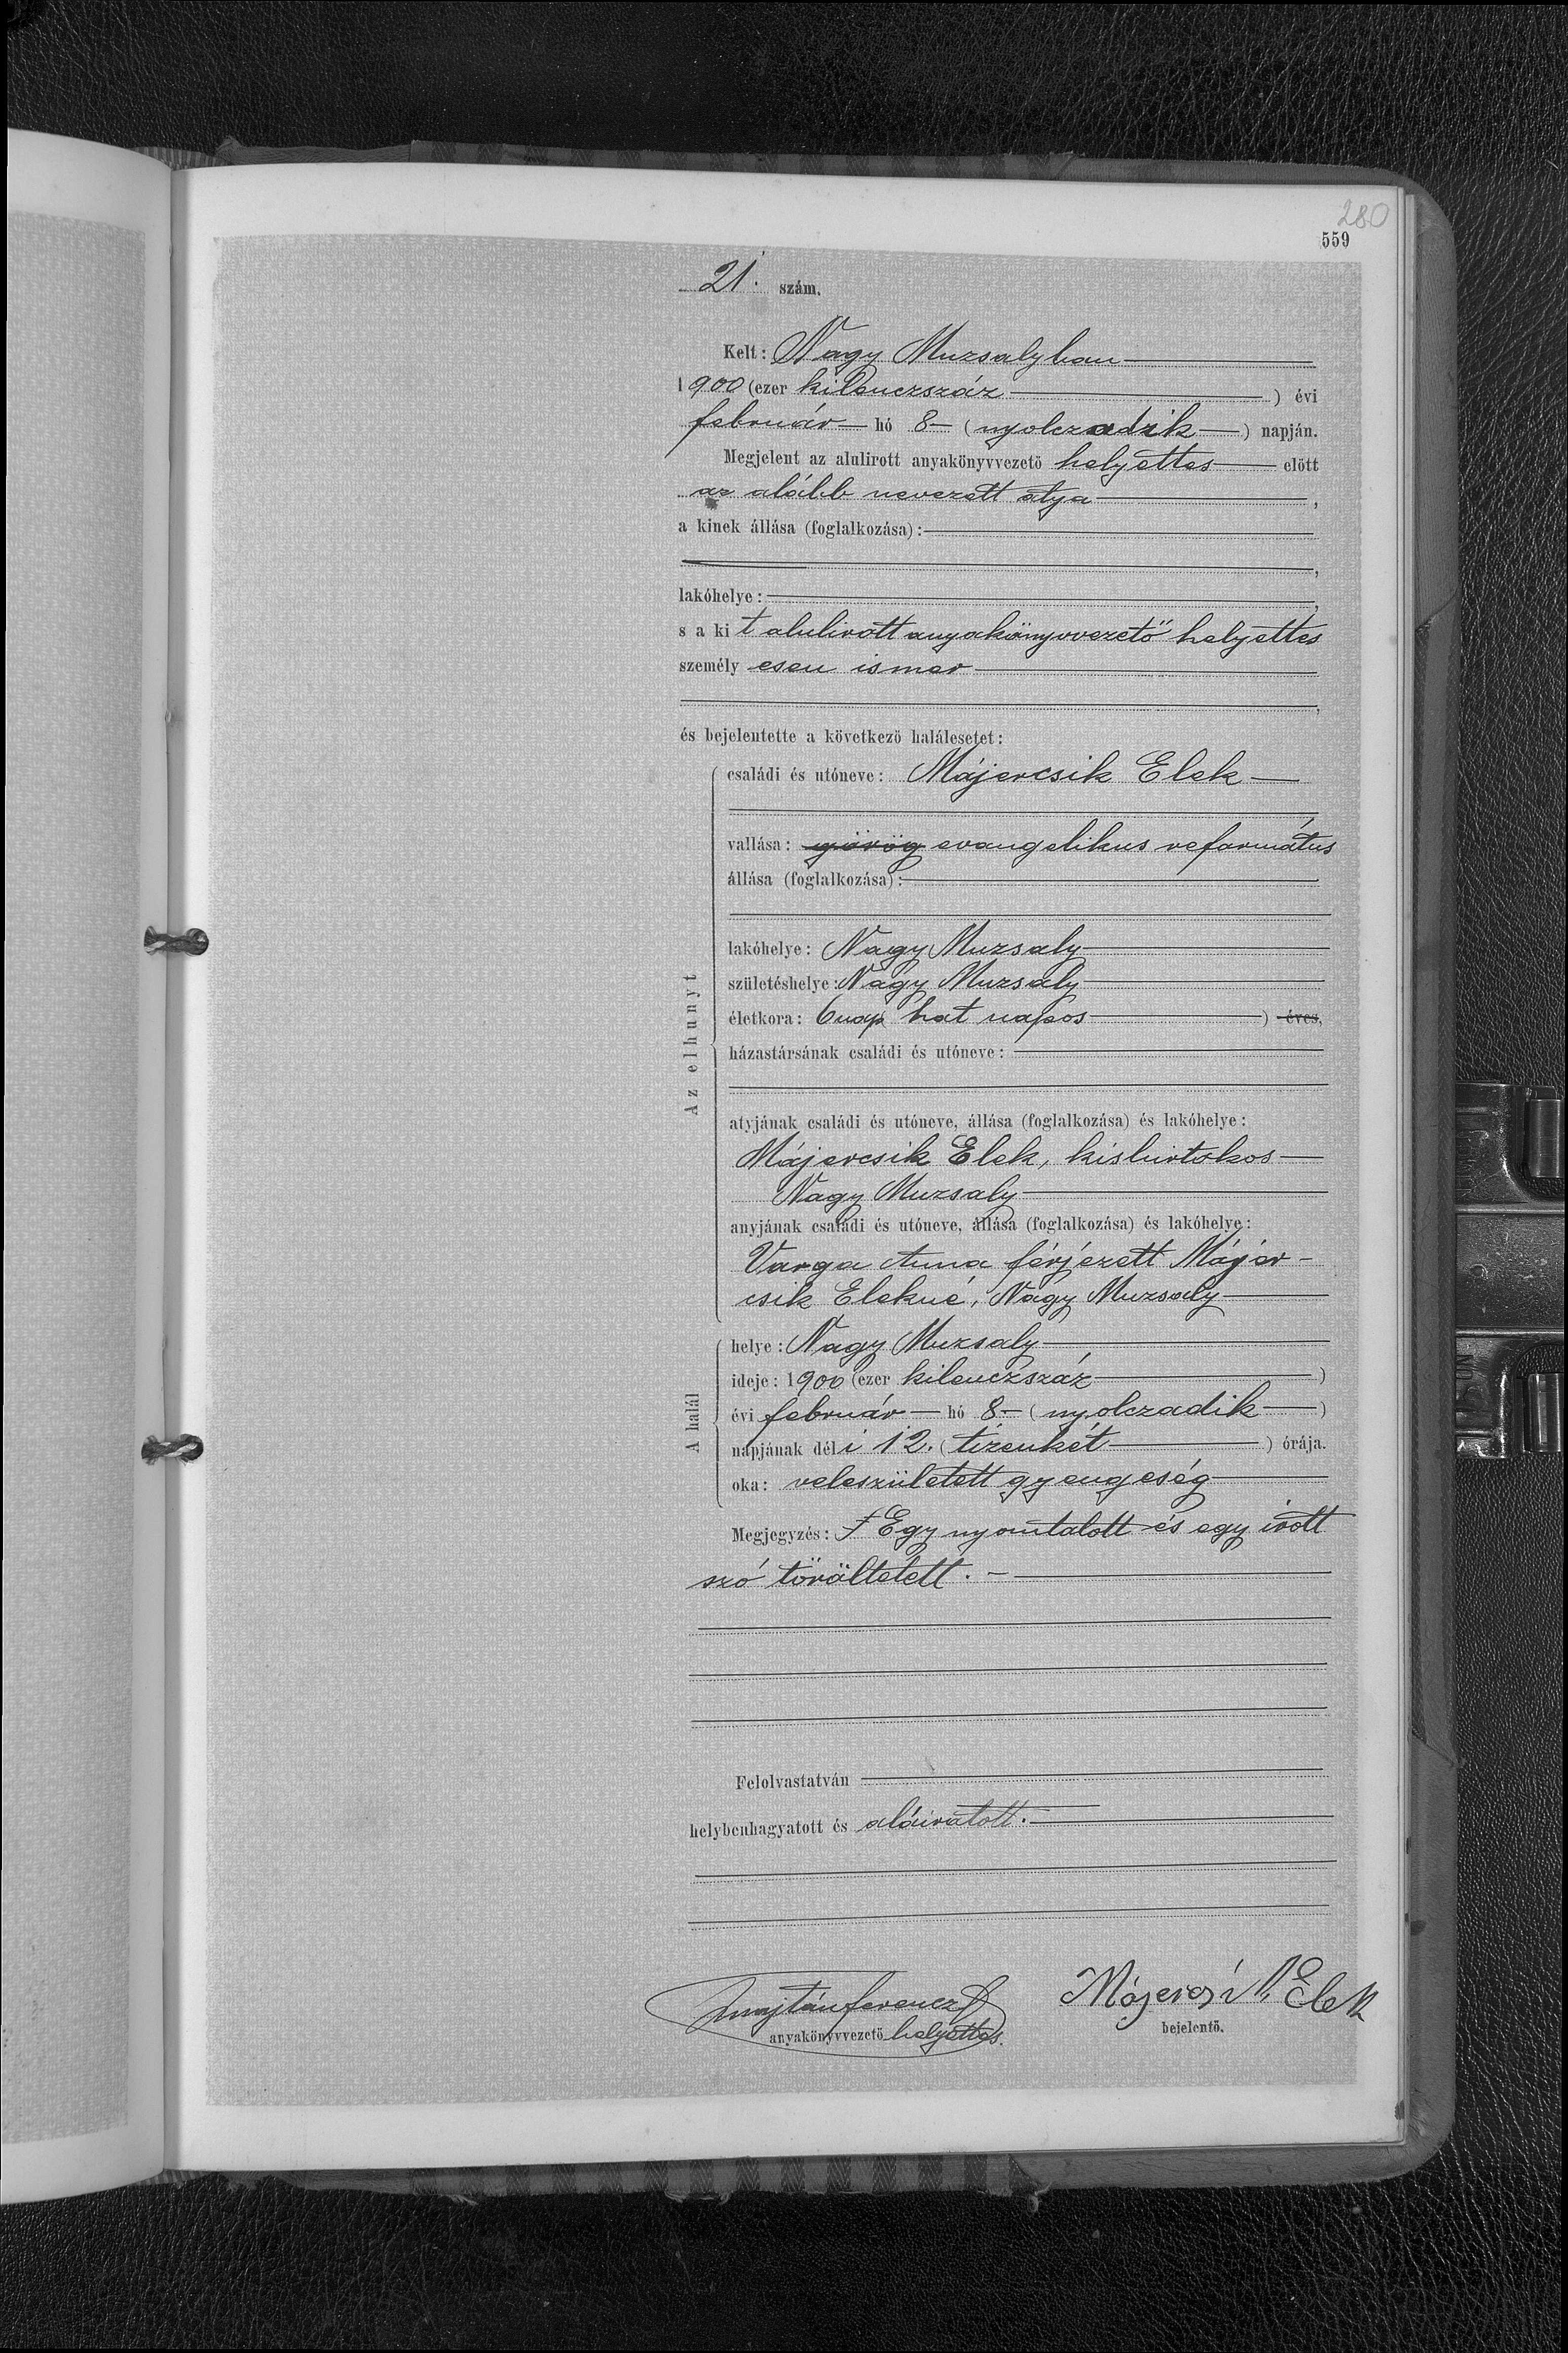 280
559
21. szám.
Kelt: Nagy Muzsalyban
1900 (ezer kilenczszáz ) évi
február hó 8 (nyolczadik ) napján.
Megjelent az alulirott anyakönyvvezető helyettes előtt
az alább nevezett atya ,
a kinek állása (foglalkozása):
,
lakóhelye: ,
s a kit alulirott anyakönyvvezető helyettes
személyesen ismer
,
és bejelentette a következő halálesetet:
Az elhunyt
családi és utóneve: Májercsik Elek
vallása: görög evangelikus református
állása (foglalkozása):
lakóhelye: Nagy Muzsaly
születéshelye: Nagy Muzsaly
életkora: 6 nap hat napos ) éves,
házastársának családi és utóneve:
atyjának családi és utóneve, állása (foglalkozása) és lakóhelye:
Májercsik Elek, kisbirtokos
Nagy Muzsaly
anyjának családi és utóneve, állása (foglalkozása) és lakóhelye:
Varga Anna férjezett Májer-
csik Elekné, Nagy Muzsaly
A halál
helye: Nagy Muzsaly
ideje: 1900 (ezer kilenczszáz )
évi február hó 8 (nyolczadik )
napjának déli 12. (tizenkét ) órája.
oka: veleszületett gyengeség
Megjegyzés: Egy nyomtatott és egy irott
szó töröltetett.
Felolvastatván
helybenhagyatott és aláiratott.
ferencz
anyakönyvvezető helyettes.
Májercsik Elek
bejelentő.